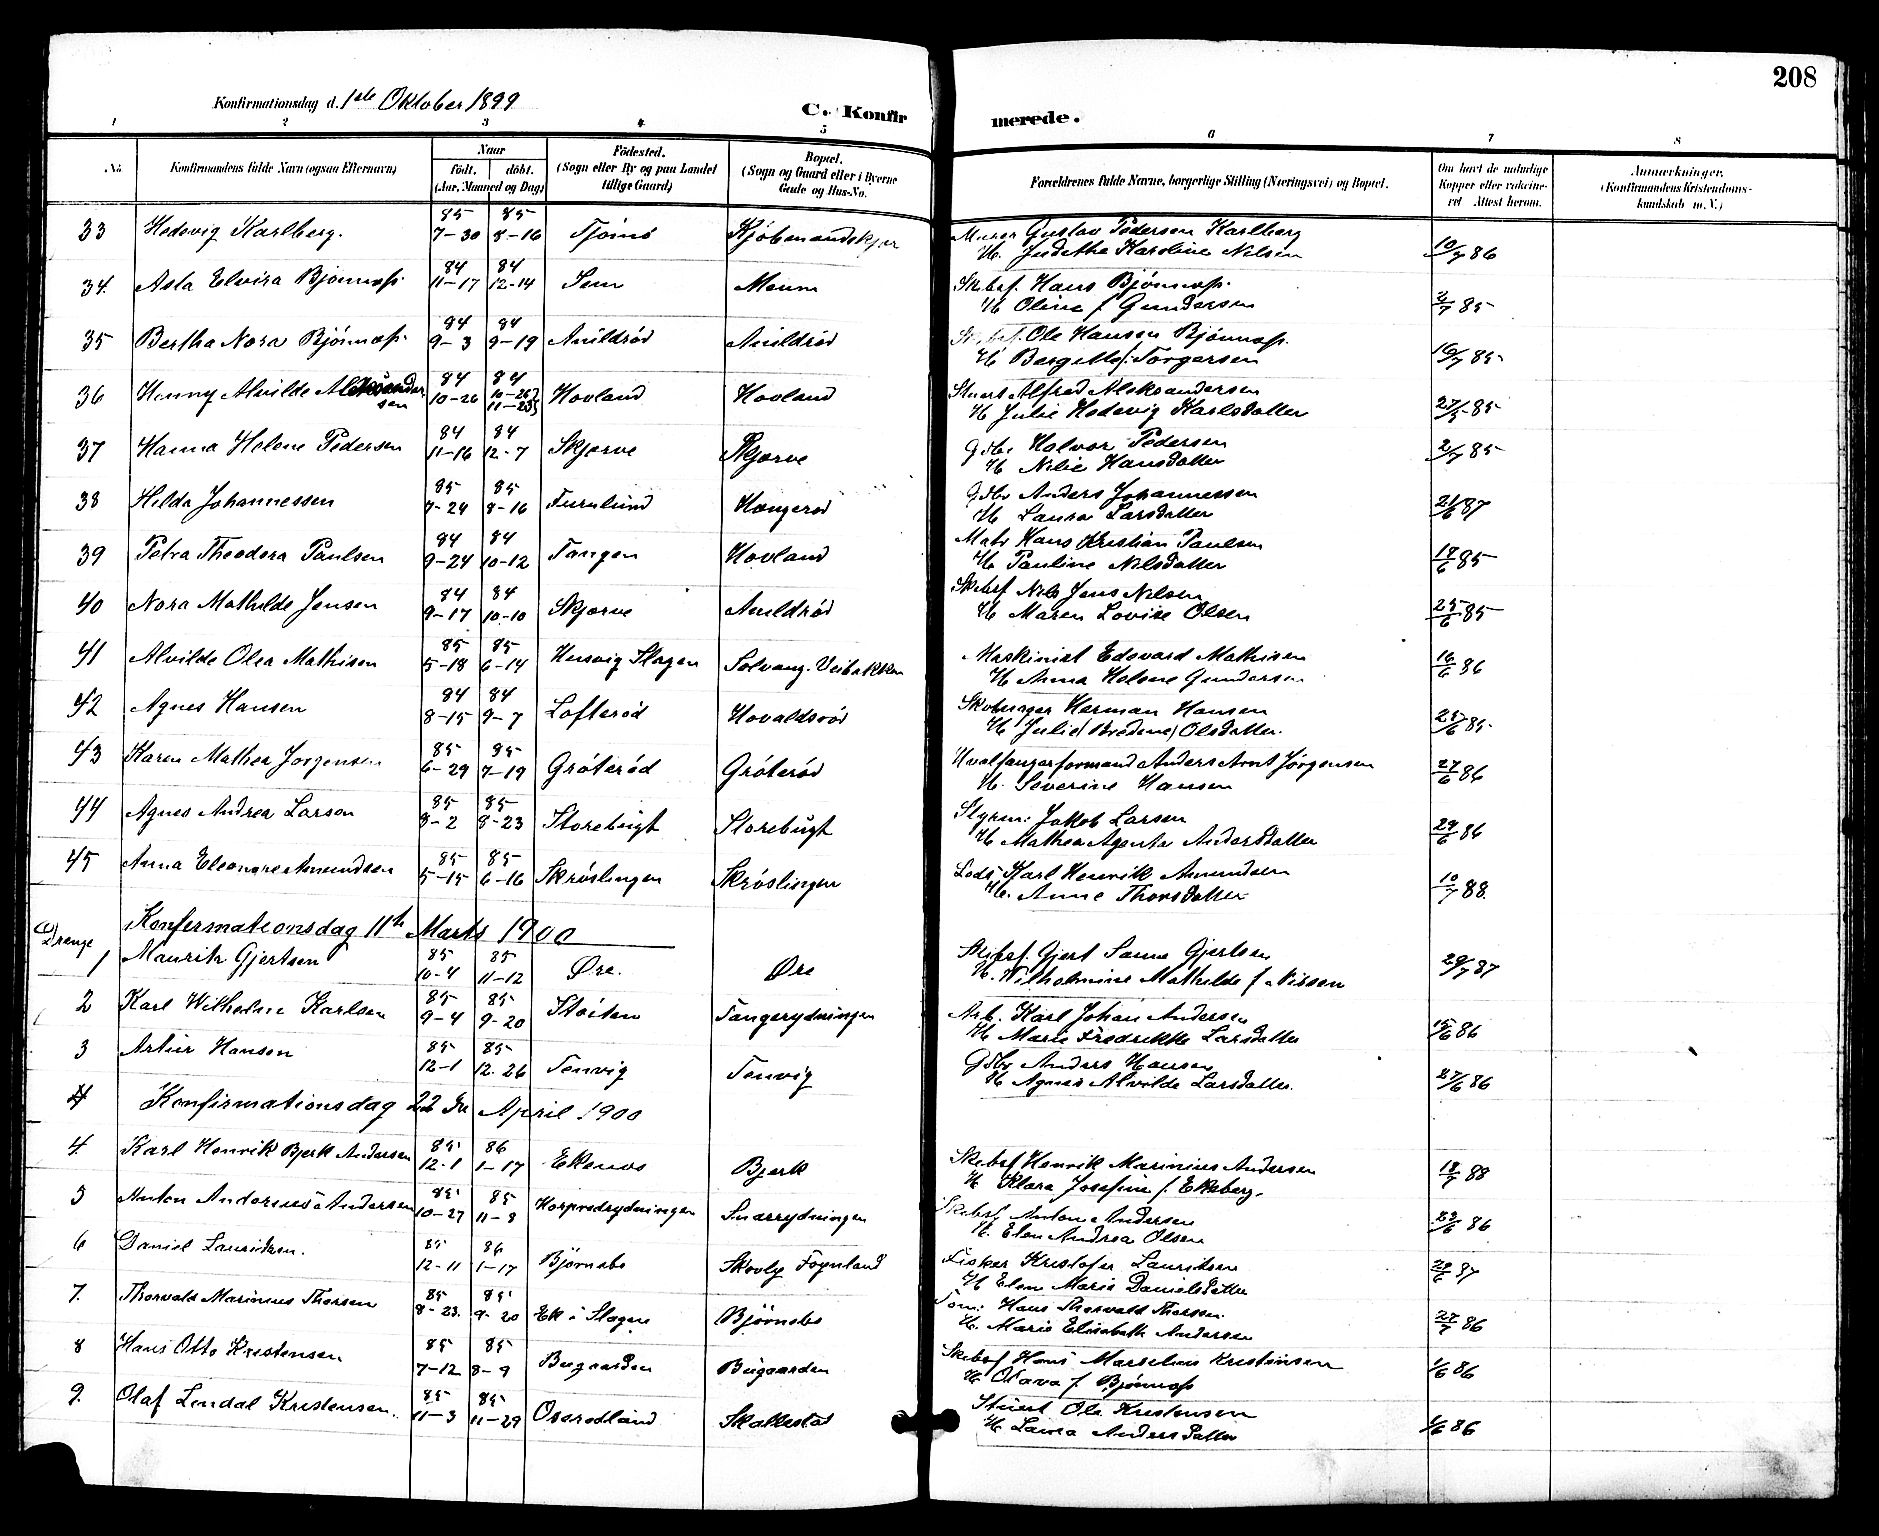 208
Konfirmationsdag d. 1ste Oktober 1899
C. Konfirmerede.
1 2 3 4 5 6 7 8
No
Konfirmandens fulde Navn (ogsaa Efternavn)
Naar
født. døbt.
(Aar, Maaned og Dag)
Fødested.
(Sogn eller By og paa Landet
tillige Gaard)
Bopæl.
(Sogn og Gaard eller i Byerne
Gade og Hus-No.
Forældrenes fulde Navne, borgerlige Stilling (Næringsvei) og Bopæl.
Om havt de naturlige
Kopper eller vaccine-
ret Attest herom.
Anmærkninger.
(Konfirmandens Kristendoms-
kundskab m. V.)
33 Hedevig Karlberg. 85 7-30 85 8-16 Tjømø Kjøbmandskjær Murer Gustav Pedersen Karlberg
H. Judithe Karoline Nilsen 10/7 86
34. Asta Elvira Bjønnæss 84 11-17 84 12-14 Sem Moum Skibsf. Hans Bjønnæss.
H Oline f Gundersen 2/7 85
35 Bertha Nora Bjønnæss. 84 9-3 84 9-19 Auildrød Auildrød Skibsf. Ole Hansen Bjønnæss.
H Bergitte f. Torgersen 10/7 85
36 Henny Alvilde Aleksandersen 84 10-26 84 10-26 11-23 Hovland Hovland Stuert Alfred Aleksandersen
H Julie Hedevig Karlsdatter 27/5 85
37 Hanna Helene Pedersen 84 11-16 84 12-7 Skjærve Skjærve Gdbr. Halvor Pedersen
H Nilie Hansdatter 2/7 85
38 Hilda Johannessen 85 7-24 85 8-16 Furulund Haugerød Gdbr Anders Johannessen
H Laura Larsdatter 21/6 87
39 Petra Theodora Paulsen 84 9-24 84 10-12 Tangen Hovland Matr Hans Kristian Paulsen
H Pauline Nilsdatter 18/6 85
40 Nora Mathilde Jensen 84 9-17 84 10-10 Skjærve Auildrød Skibsf Nils Jens Nilsen
H Maren Lovise Olsen 25/6 85
41 Alvilde Olea Mathisen 85 5-18 85 6-14 Husvig Slagen Solvang. Veibakken Maskinist Edevard Mathisen
H Anna Helene Gundersen 16/6 86
42 Agnes Hansen 84 8-15 84 9-7 Lofterød Hovaldsrød Skomager Herman Hansen
H Julie (Bredine) Olsdatter. 25/6 85
43 Karen Mathea Jørgensen 85 6-29 85 7-19 Grøterød Grøterød Hvalfangerformand Anders Arnt Jørgensen
H. Severine Hansen 27/6 86
44 Agnes Andrea Larsen 85 8-2 85 8-23 Storebugt Storebugt Styrm. Jakob Larsen
H Mathea Agenta Andersdatter 29/6 86
45 Anna Eleonore Amundsen 85 5-15 85 6-16 Skrøslingen Skrøslingen Lods Karl Henrik Amundsen
H. Anne Thorsdatter 10/7 88.
Konfirmationsdag 11te Marts 1900
Drenge
1 Mauritz Gjertsen 85 10-4 85 11-12 Øre. Øre Skibsf. Gjert Sanne Gjertsen
H. Wilhelmine Mathilde f Nissen 29/7 87
2 Karl Wilhelm Karlsen 85 9-4 85 9-20 Støiten Tangerydningen Arb. Karl Johan Andersen
H Marie Fredrikke Larsdatter 15/6 86
3 Artur Hansen 85 12-1 85 12.26 Tenvig Tenvig Gdbr Anders Hansen
H Agnes Alvilde Larsdatter. 27/6 86
4 Konfirmationsdag 22de April 1900
4. Karl Henrik Bjerk Andersen 85 12-1 86 1-17 Ekenes Bjerk Skibsf Henrik Marinius Andersen
H Klara Josefine f. Ekeberg. 18/7 88
5 Anton Andorinus Andersen 85 10-27 85 11-8 Horperødrydningen Snarrydningen Skibsf Anton Andersen
H. Elen Andrea Olsen 23/6 86
6 Daniel Lauritsen. 85 12-11 86 1-17 Bjørnebo Skovly Føynland Fisker Kristofer Lauritsen
H Elen Marie Danielsdatter 28/6 87
7. Thorvald Marinius Thorsen 85 8-23. 85 9-20 Ek i Slagen Bjørnebo Tøm: Hans Thorvald Thorsen
H. Marie Elisabeth Andersen 27/7 86
8 Hans Otto Kristensen 85 7-12 85 8-9 Bugaarden Bugaarden Skibsf Hans Marselius Kristensen
H Olava f Bjønnæss 1/6 86
9. Olaf Lendal Kristensen. 85 11-3 85 11-29 Oserødland Skallestad Stuert Ole Kristensen
H Laura Andersdatter 1/6 86